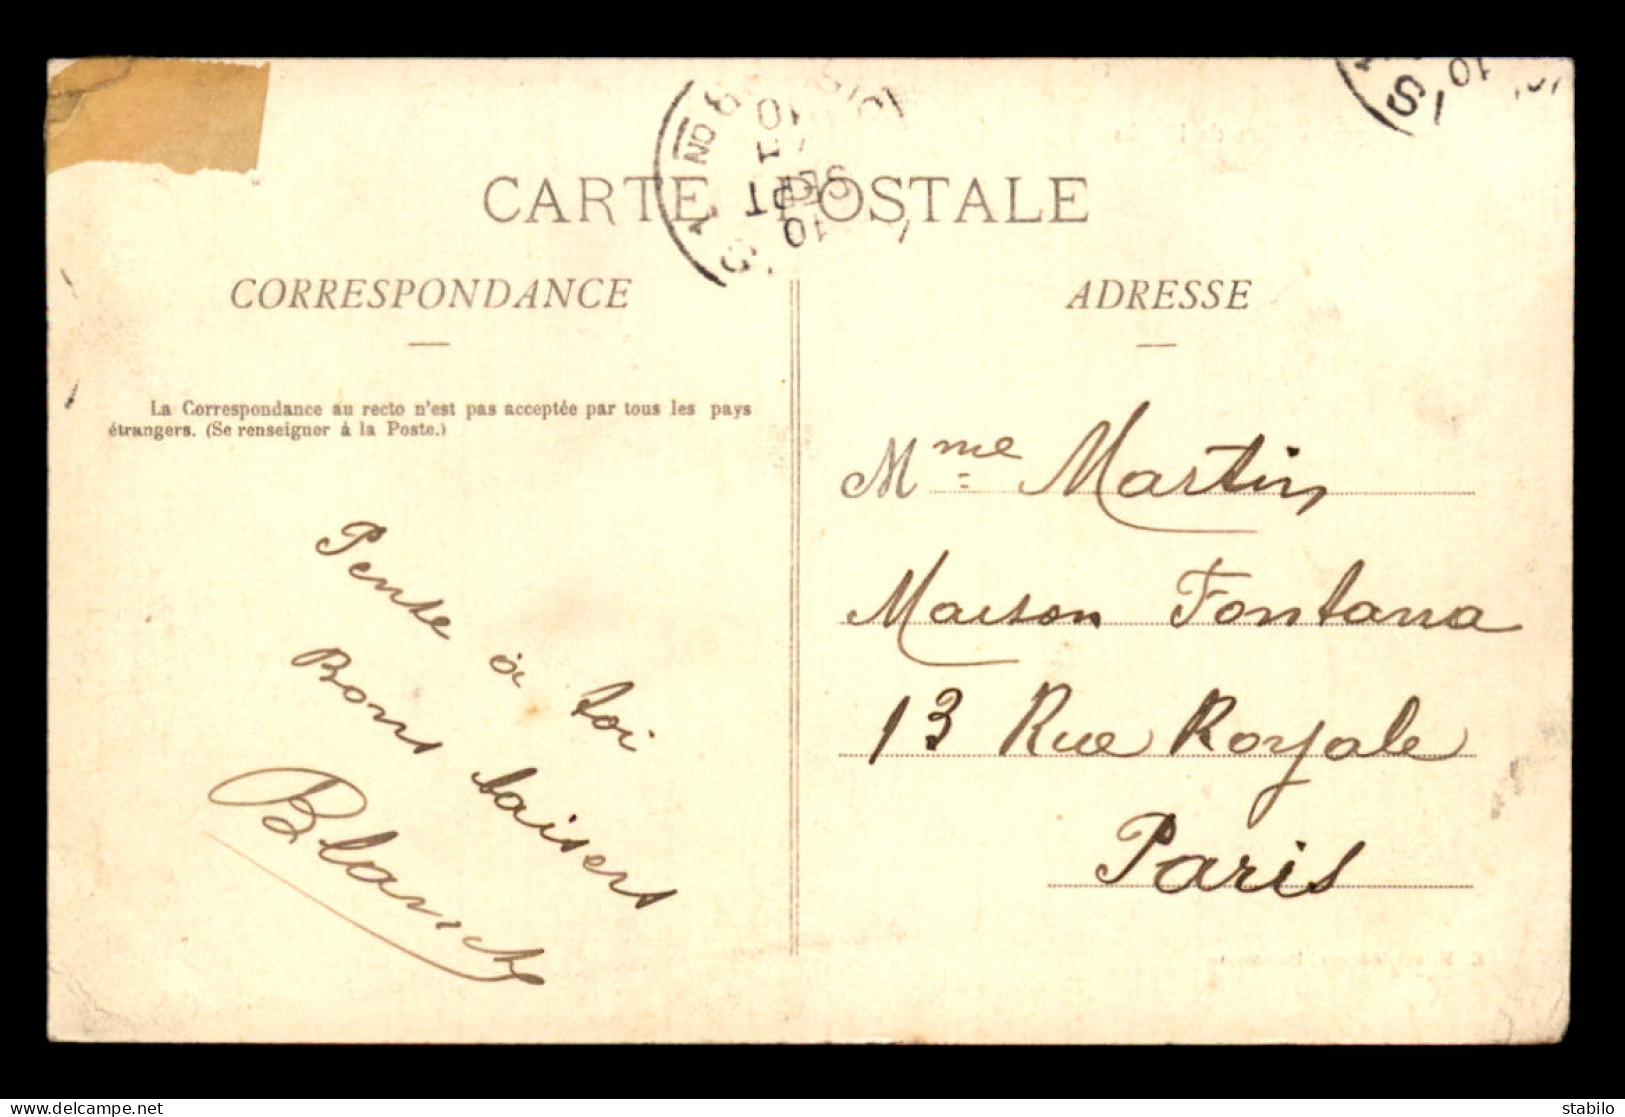 CARTE POSTALE
CORRESPONDANCE
ADRESSE
La Correspondance au recto n'est pas acceptée par tous les pays
étrangers. (Se renseigner à la Poste.)
Pense à toi
Bons baisers
Blanche
Mme Martin
Maison Fontana
13 Rue Royale
Paris
10
SEPT
10
10
delcampe.net
stabilo